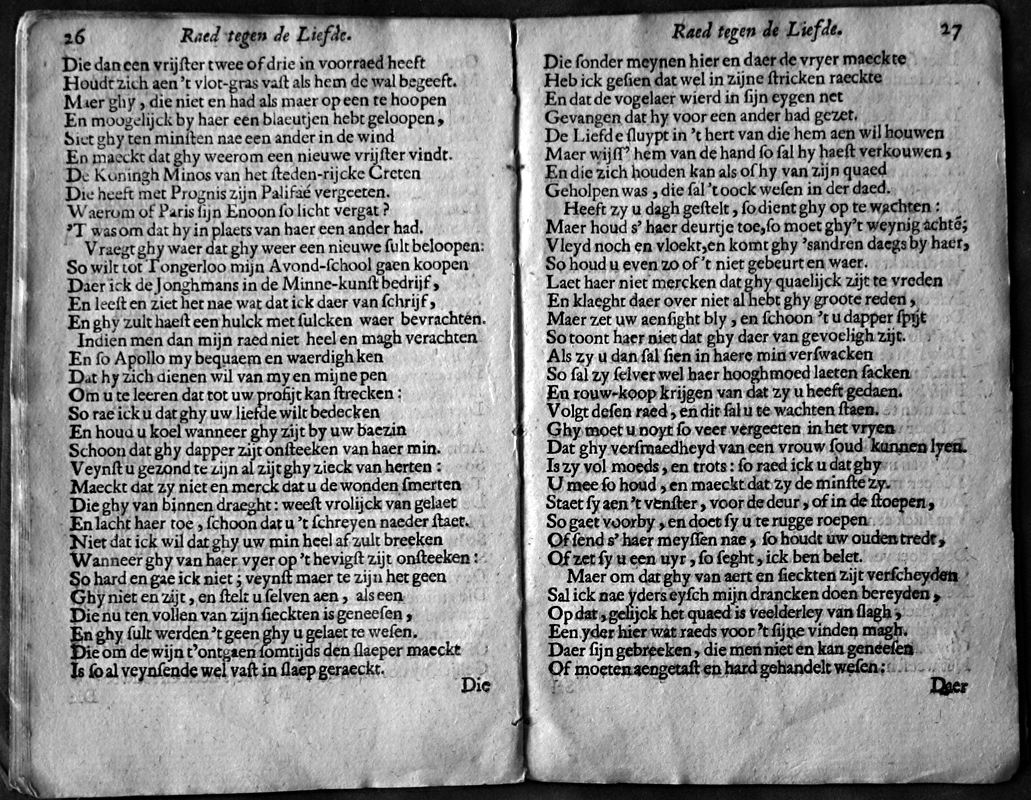 26 Raed tegen de Liefde.
Die dan een vrijſter twee of drie in voorraed heeft
Houdt zich aen 't vlot-gras vaſt als hem de wal begeeft.
Maer ghy, die niet en had als maer op een te hoopen
En moogelijck by haer een blaeutjen hebt geloopen,
Siet ghy ten minſten nae een ander in de wind
En maeckt dat ghy weerom een nieuwe vrijſter vindt.
De Koningh Minos van het ſteden-rijcke Creten
Die heeft met Prognis zijn Paliſaé vergeeten.
Waerom of Paris ſijn Enoon ſo licht vergat?
'T was om dat hy in plaets van haer een ander had.
Vraegt ghy waer dat ghy weer een nieuwe ſult beloopen:
So wilt tot Tongerloo mijn Avond-ſchool gaen koopen
Daer ick de Jonghmans in de Minne-kunſt bedrijf,
En leeſt en ziet het nae wat dat ick daer van ſchrijf,
En ghy zult haeſt een hulck met ſulcken waer bevrachten.
Indien men dan mijn raed niet heel en magh verachten
En ſo Apollo my bequaem en waerdigh ken
Dat hy zich dienen wil van my en mijne pen
Om u te leeren dat tot uw profijt kan ſtrecken:
So rae ick u dat ghy uw liefde wilt bedecken
En houd u koel wanneer ghy zijt by uw baezin
Schoon dat ghy dapper zijt onſteeken van haer min.
Veynſt u gezond te zijn al zijt ghy zieck van herten:
Maeckt dat zy niet en merck dat u de wonden ſmerten
Die ghy van binnen draeght: weeſt vrolijck van gelaet
En lacht haer toe, ſchoon dat u 't ſchreyen naeder ſtaet.
Niet dat ick wil dat ghy uw min heel af zult breeken
Wanneer ghy van haer vyer op 't hevigſt zijt onſteeken:
So hard en gae ick niet; veynſt maer te zijn het geen
Ghy niet en zijt, en ſtelt u ſelven aen, als een
Die nu ten vollen van zijn ſieckten is geneeſen,
En ghy ſult werden 't geen ghy u gelaet te weſen.
Die om de wijn t'ontgaen ſomtijds den ſlaeper maeckt
Is ſo al veynſende wel vaſt in ſlaep geraeckt.
Die
Raed tegen de Liefde. 27
Die ſonder meynen hier en daer de vryer maeckte
Heb ick geſien dat wel in zijne ſtricken raeckte
En dat de vogelaer wierd in ſijn eygen net
Gevangen dat hy voor een ander had gezet.
De Liefde ſluypt in 't hert van die hem aen wil houwen
Maer wijſſ' hem van de hand ſo ſal hy haeſt verkouwen,
En die zich houden kan als of hy van zijn quaed
Geholpen was, die ſal 't oock weſen in der daed.
Heeft zy u dagh geſtelt, ſo dient ghy op te wachten:
Maer houd s' haer deurtje toe, ſo moet ghy 't weynig achtē;
Vleyd noch en vloekt, en komt ghy 'sandren daegs by haer,
So houd u even zo of 't niet gebeurt en waer.
Laet haer niet mercken dat ghy quaelijck zijt te vreden
En klaeght daer over niet al hebt ghy groote reden,
Maer zet uw aenſight bly, en ſchoon 't u dapper ſpijt
So toont haer niet dat ghy daer van gevoeligh zijt.
Als zy u dan ſal ſien in haere min verſwacken
So ſal zy ſelver wel haer hooghmoed laeten ſacken
En rouw-koop krijgen van dat zy u heeft gedaen.
Volgt deſen raed, en dit ſal u te wachten ſtaen.
Ghy moet u noyt ſo veer vergeeten in het vryen
Dat ghy verſmaedheyd van een vrouw ſoud kunnen lyen.
Is zy vol moeds, en trots: ſo raed ick u dat ghy
U mee ſo houd, en maeckt dat zy de minſte zy.
Staet ſy aen 't venſter, voor de deur, of in de ſtoepen,
So gaet voorby, en doet ſy u te rugge roepen
Of ſend s' haer meyſſen nae, ſo houdt uw ouden tredt,
Of zet ſy u een uyr, ſo ſeght, ick ben belet.
Maer om dat ghy van aert en ſieckten zijt verſcheyden
Sal ick nae yders eyſch mijn drancken doen bereyden,
Op dat, gelijck het quaed is veelderley van ſlagh,
Een yder hier wat raeds voor 't ſijne vinden magh.
Daer ſijn gebreeken, die men niet en kan geneeſen
Of moeten aengetaſt en hard gehandelt weſen:
Daer